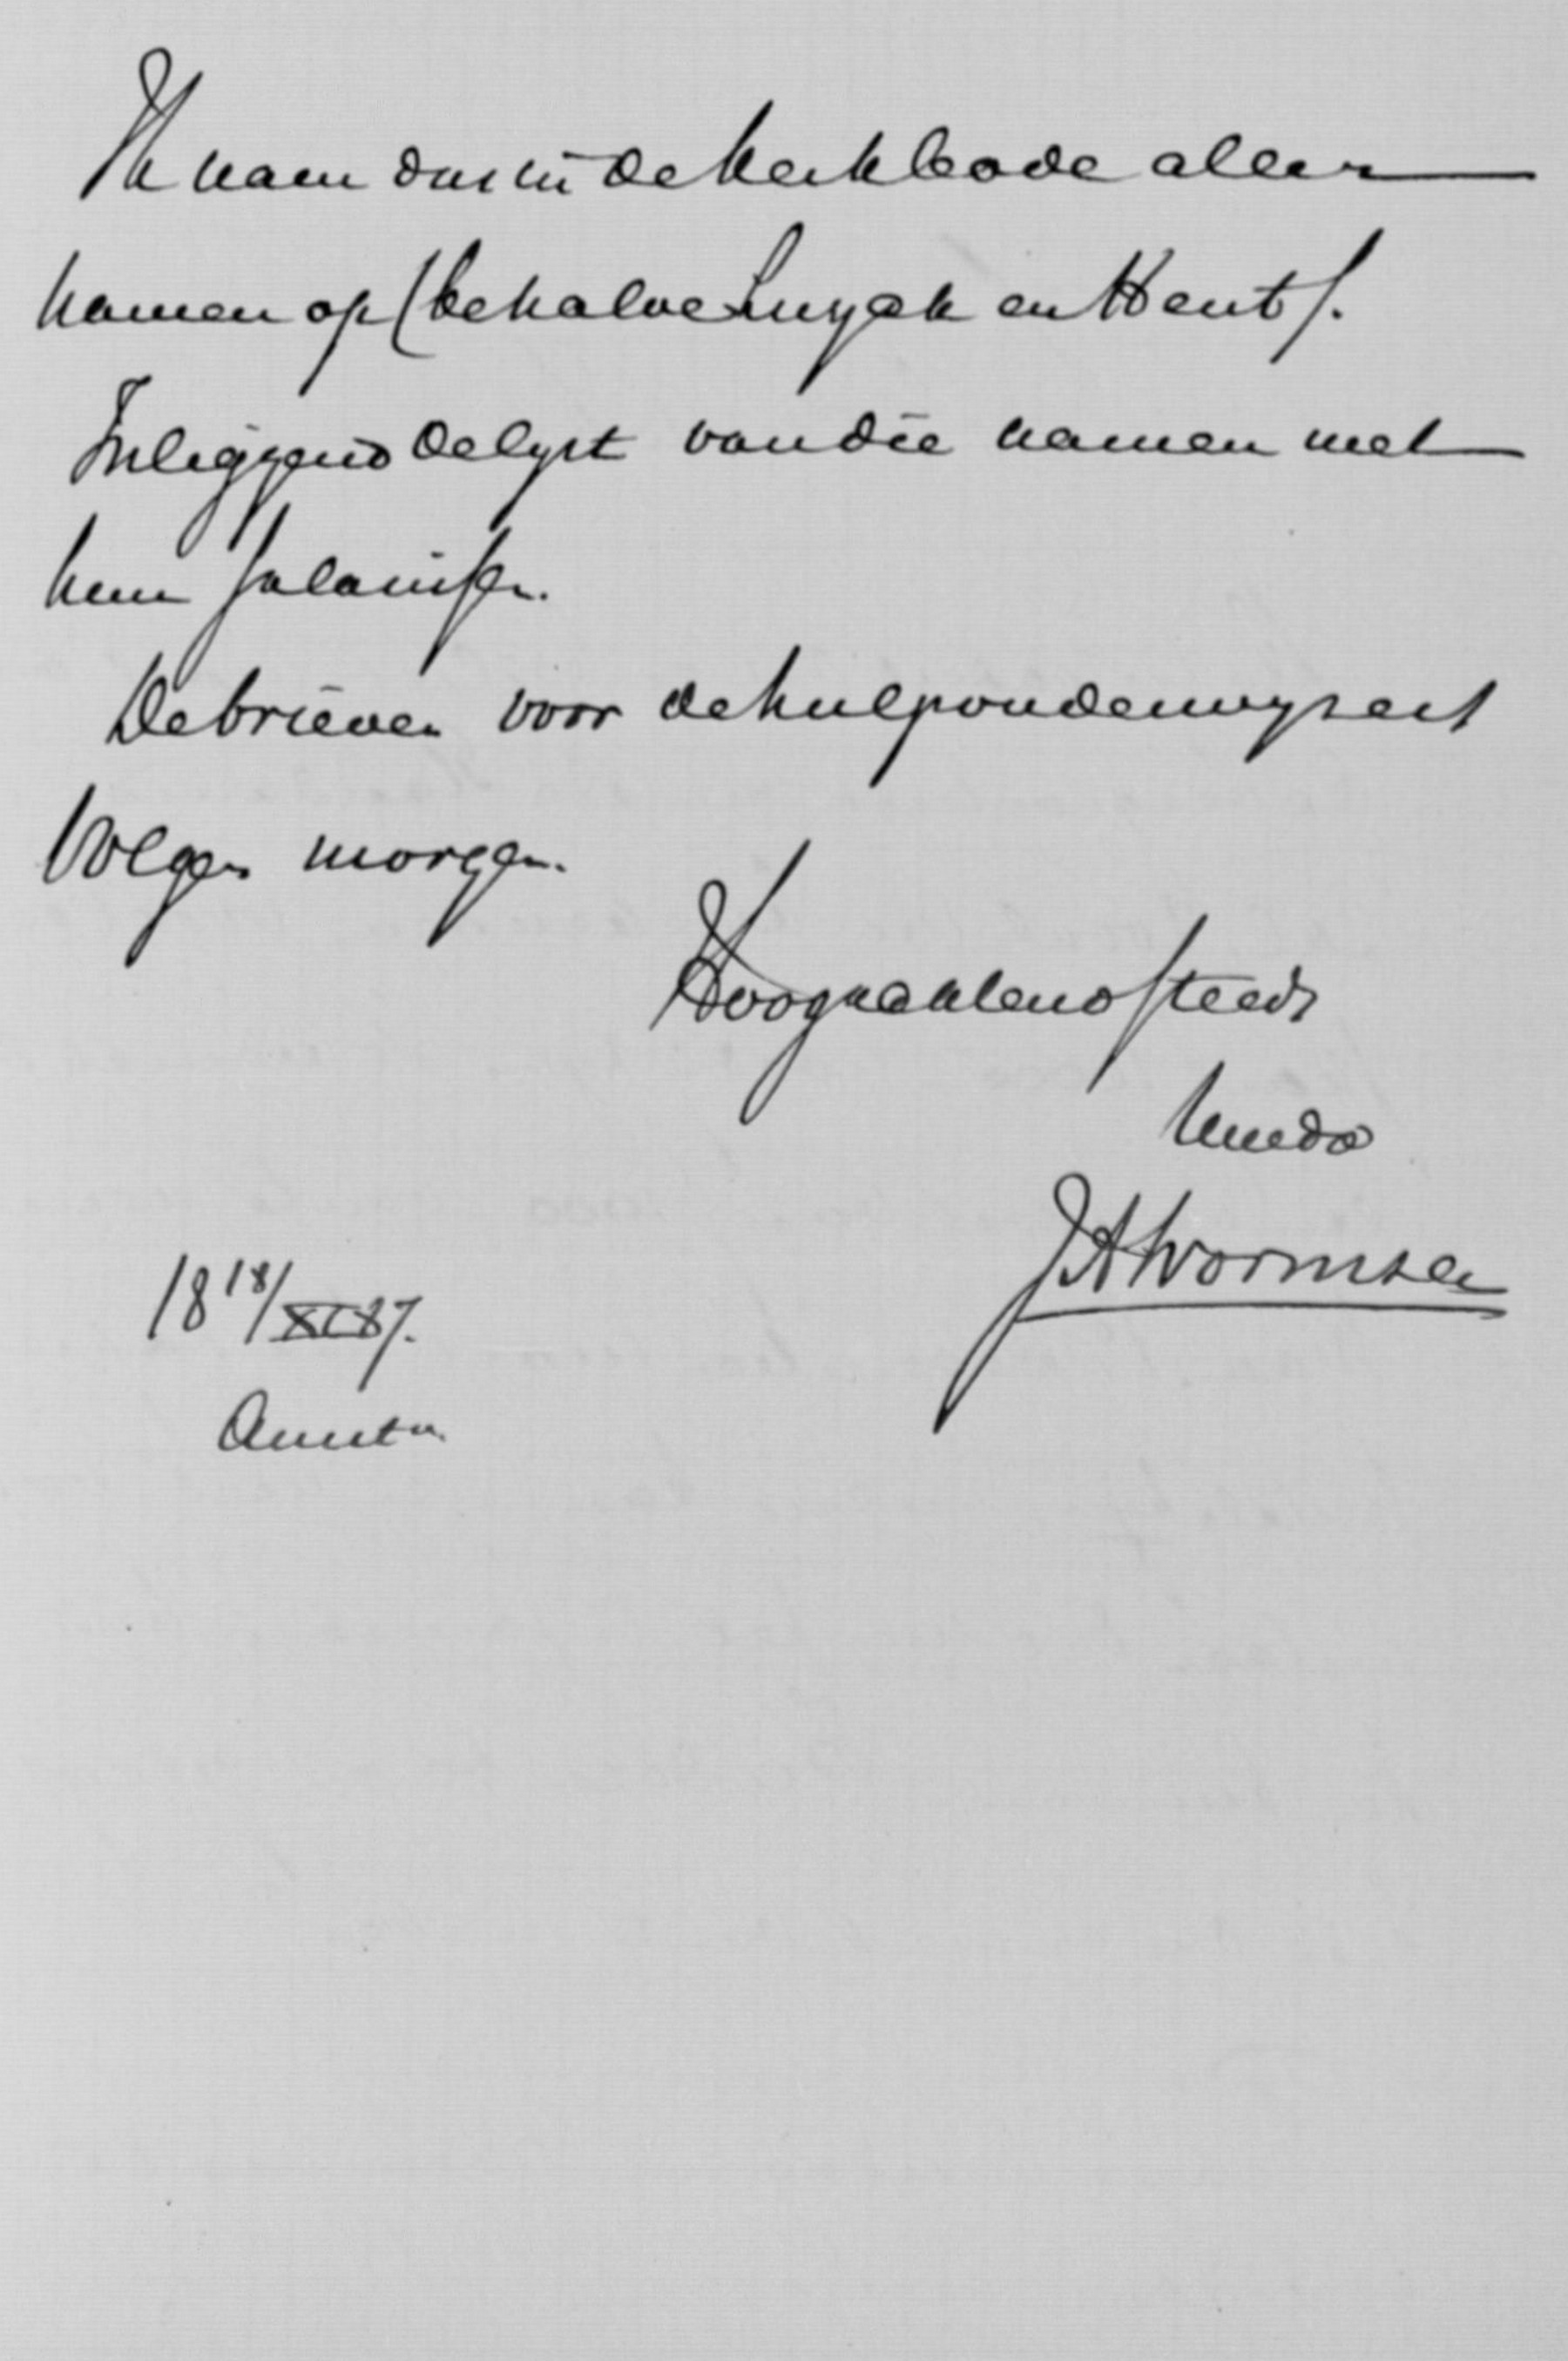 Ik nam dus in de Kerkbode aller
namen op (behalve Luyck en Hent).
Inliggend de lyst van die namen met
hun salarissen.
De brieven voor de hulponderwyzers
volgen morgen.
Hoogachtend steeds
Uwedw
JAWormser
18 18/XI 87.
Amstm.